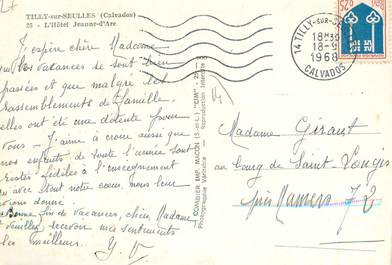 TILLY-sur-SEULLES (Calvados)
25 - L'Hôtel Jeanne-d'Arc
J'espère chère Madame
que les vacances se sont bien
passées et que malgré les
rassemblements de famille,
elles ont été une détente pour
vous - J'aime à croire aussi que
nos enfants de toute l'année sont
restés fidèles à l'enseignement
avec tout notre cœur, nous leur
avions donné
Bonne fin de vacances, chère Madame
et veuillez recevoir mes sentiments
les meilleurs.
Y. V
COMBIER IMP. MACON (S.-et-L.) "CIM"
Photographie Véritable
Reproduction Interdite
14 TILLY-SUR-SEULLES
18H30
18-9
1968
CALVADOS
Madame Giraut
au bourg de Saint-Longis
près Mamers 72